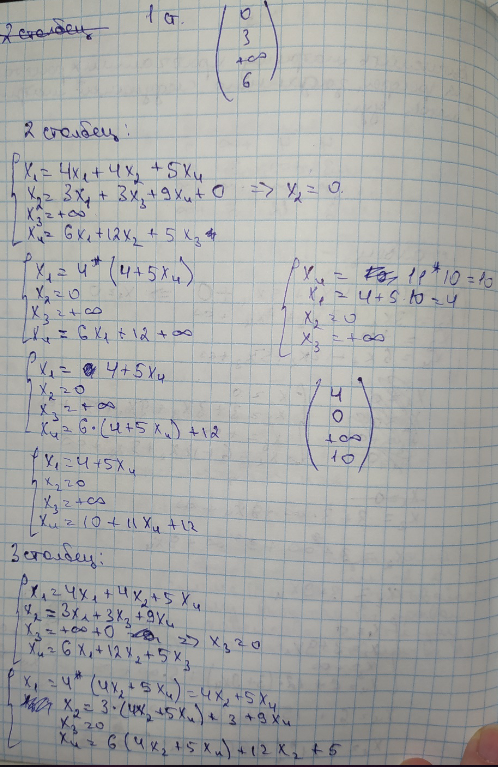 1 ст. (0 3 +∞ 6)
2 столбец:
x₁ = 4x₁ + 4x₂ + 5x₄
x₂ = 3x₁ + 3x₃ + 9x₄ + 0 => x₂ = 0.
x₃ = +∞
x₄ = 6x₁ + 12x₂ + 5x₃
x₁ = 4* (4 + 5x₄)
x₂ = 0
x₃ = +∞
x₄ = 6x₁ + 12 + ∞
x₄ = 11* 10 = 10
x₁ = 4 + 5·10 = 4
x₂ = 0
x₃ = +∞
x₁ = 4 + 5x₄
x₂ = 0
x₃ = +∞
x₄ = 6·(4 + 5x₄) + 12
(4 0 +∞ 10)
x₁ = 4 + 5x₄
x₂ = 0
x₃ = +∞
x₄ = 10 + 11x₄ + 12
3 столбец:
x₁ = 4x₁ + 4x₂ + 5x₄
x₂ = 3x₁ + 3x₃ + 9x₄
x₃ = +∞ + 0 => x₃ = 0
x₄ = 6x₁ + 12x₂ + 5x₃
x₁ = 4* (4x₂ + 5x₄) = 4x₂ + 5x₄
x₂ = 3·(4x₂ + 5x₄) + 3 + 9x₄
x₃ = 0
x₄ = 6(4x₂ + 5x₄) + 12x₂ + 5